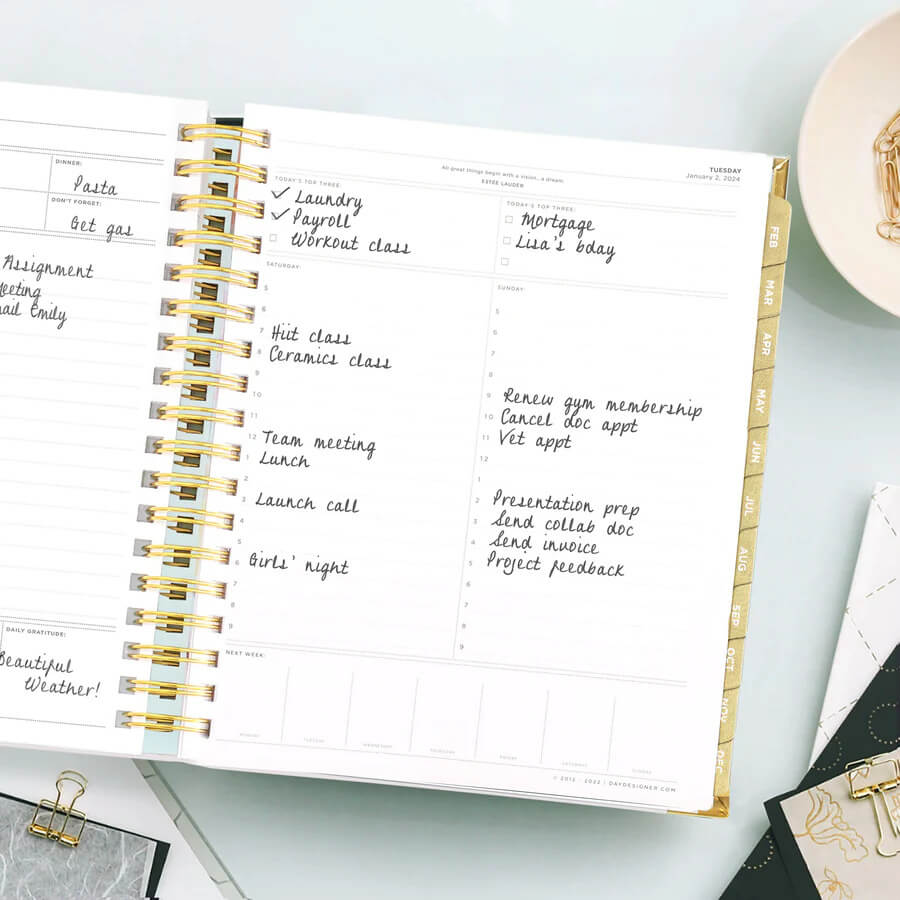 DINNER:
Pasta
DON'T FORGET:
Get gas
Assignment
Meeting
Emily
DAILY GRATITUDE:
Beautiful
Weather!
All great things begin with a vision...a dream.
ESTÉE LAUDER
TUESDAY
January 2, 2024
TODAY'S TOP THREE:
Laundry
Payroll
Workout class
TODAY'S TOP THREE:
Mortgage
Lisa's bday
SATURDAY:
5
6
7 Hiit class
8 Ceramics class
9
10
11
12 Team meeting
1 Lunch
2
3 Launch call
4
5
6 Girls' night
7
8
9
SUNDAY:
5
6
7
8
9 Renew gym membership
10 Cancel doc appt
11 Vet appt
12
1
2 Presentation prep
3 Send collab doc
4 Send invoice
5 Project feedback
6
7
8
9
NEXT WEEK:
MONDAY
TUESDAY
WEDNESDAY
THURSDAY
FRIDAY
SATURDAY
SUNDAY
© 2012 - 2022 | DAYDESIGNER.COM
FEB
MAR
APR
MAY
JUN
JUL
AUG
SEP
OCT
NOV
DEC